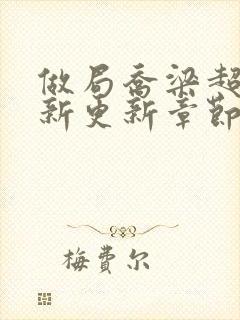 做局乔梁超
新更新章節
梅费尔